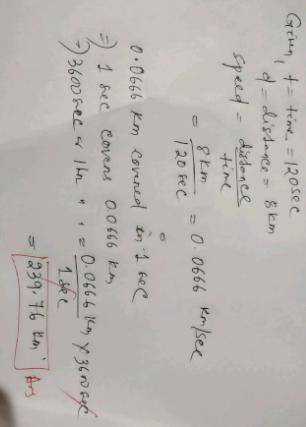 Given, t = time = 120 sec
d = distance = 8 km
speed = distance / time
= 8 km / 120 sec = 0.0666 km/sec
0.0666 km covered in 1 sec
=) 1 sec covers 0.0666 km
=) 3600 sec or 1 hr " " = 0.0666 km / 1 sec × 3600 sec
= 239.76 km Ans